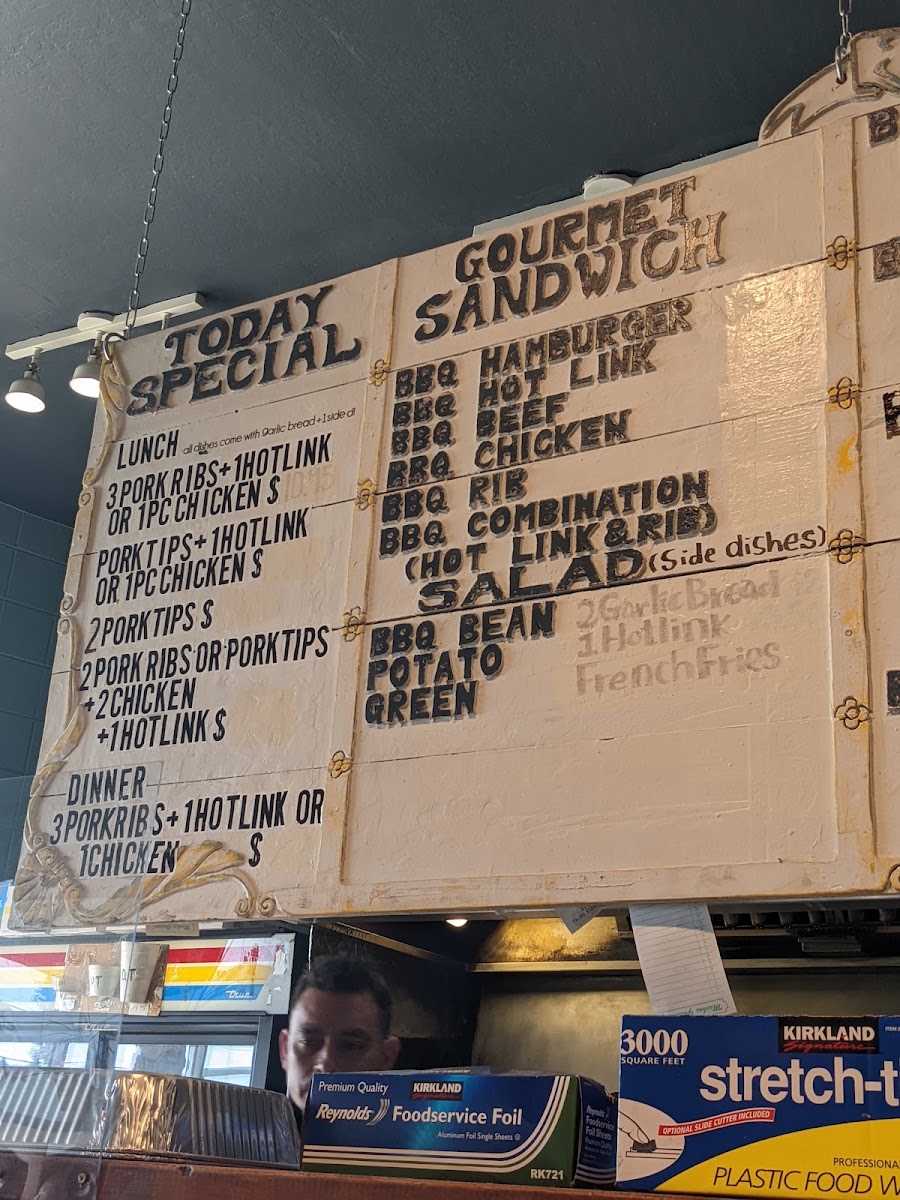 TODAY
SPECIAL
LUNCH all dishes come with garlic bread + 1 side di
3 PORK RIBS + 1 HOTLINK
OR 1 PC CHICKEN $ 10.95
PORK TIPS + 1 HOTLINK
OR 1 PC CHICKEN $
2 PORK TIPS $
2 PORK RIBS OR PORK TIPS
+ 2 CHICKEN
+ 1 HOTLINK $
DINNER
3 PORK RIBS + 1 HOTLINK OR
1 CHICKEN $
GOURMET
SANDWICH
BBQ HAMBURGER
BBQ HOT LINK
BBQ BEEF
BBQ CHICKEN
BBQ RIB
BBQ COMBINATION
(HOT LINK & RIB)
SALAD (Side dishes)
BBQ BEAN
POTATO
GREEN
2 Garlic Bread
1 Hotlink
French Fries
True
Premium Quality KIRKLAND
Signature
Reynolds Foodservice Foil
Aluminum Foil Single Sheets
RK721
Reynolds
Foodservice
Foil Sheets
3000
SQUARE FEET
KIRKLAND
Signature
stretch-t
OPTIONAL SLIDE CUTTER INCLUDED
PROFESSIONA
PLASTIC FOOD W